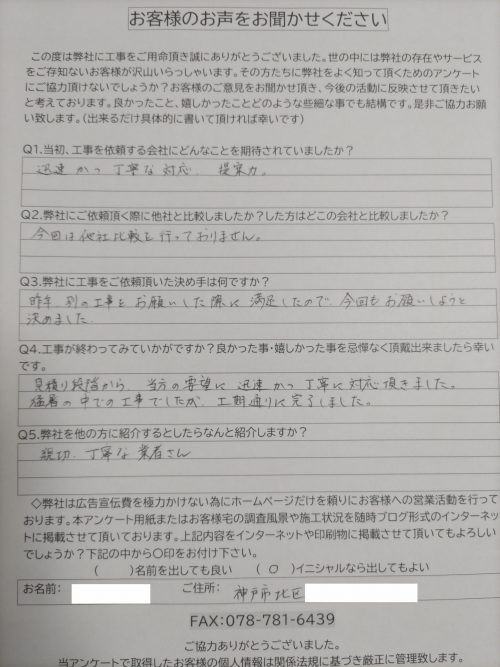 お客様のお声をお聞かせください
この度は弊社に工事をご用命頂き誠にありがとうございました。世の中には弊社の存在やサービス
をご存知ないお客様が沢山いらっしゃいます。その方たちに弊社をよく知って頂くためのアンケート
にご協力頂けないでしょうか？お客様のご意見をお聞かせ頂き、今後の活動に反映させて頂きたい
と考えております。良かったこと、嬉しかったことどのような些細な事でも結構です。是非ご協力お願
い致します。（出来るだけ具体的に書いて頂ければ幸いです）
Q1.当初、工事を依頼する会社にどんなことを期待されていましたか？
迅速かつ丁寧な対応、提案力。
Q2.弊社にご依頼頂く際に他社と比較しましたか？した方はどこの会社と比較しましたか？
今回は他社比較を行っておりません。
Q3.弊社に工事をご依頼頂いた決め手は何ですか？
昨年、別の工事をお願いした際に満足したので、今回もお願いしようと
決めました。
Q4.工事が終わってみていかがですか？良かった事・嬉しかった事を忌憚なく頂戴出来ましたら幸い
です。
見積り段階から、当方の要望に迅速かつ丁寧に対応頂きました。
猛暑の中での工事でしたが、工期通りに完了しました。
Q5.弊社を他の方に紹介するとしたらなんと紹介しますか？
親切、丁寧な業者さん
◇弊社は広告宣伝費を極力かけない為にホームページだけを頼りにお客様への営業活動を行って
おります。本アンケート用紙またはお客様宅の調査風景や施工状況を随時ブログ形式のインターネッ
トに掲載させて頂いております。上記内容をインターネットや印刷物に掲載させて頂いてもよろしい
でしょうか？下記の中から〇印をお付け下さい。
（　）名前を出しても良い　（○）イニシャルなら出してもよい
お名前：　ご住所：神戸市北区
FAX:078-781-6439
ご協力ありがとうございました。
当アンケートで取得したお客様の個人情報は関係法規に基づき厳正に管理致します。